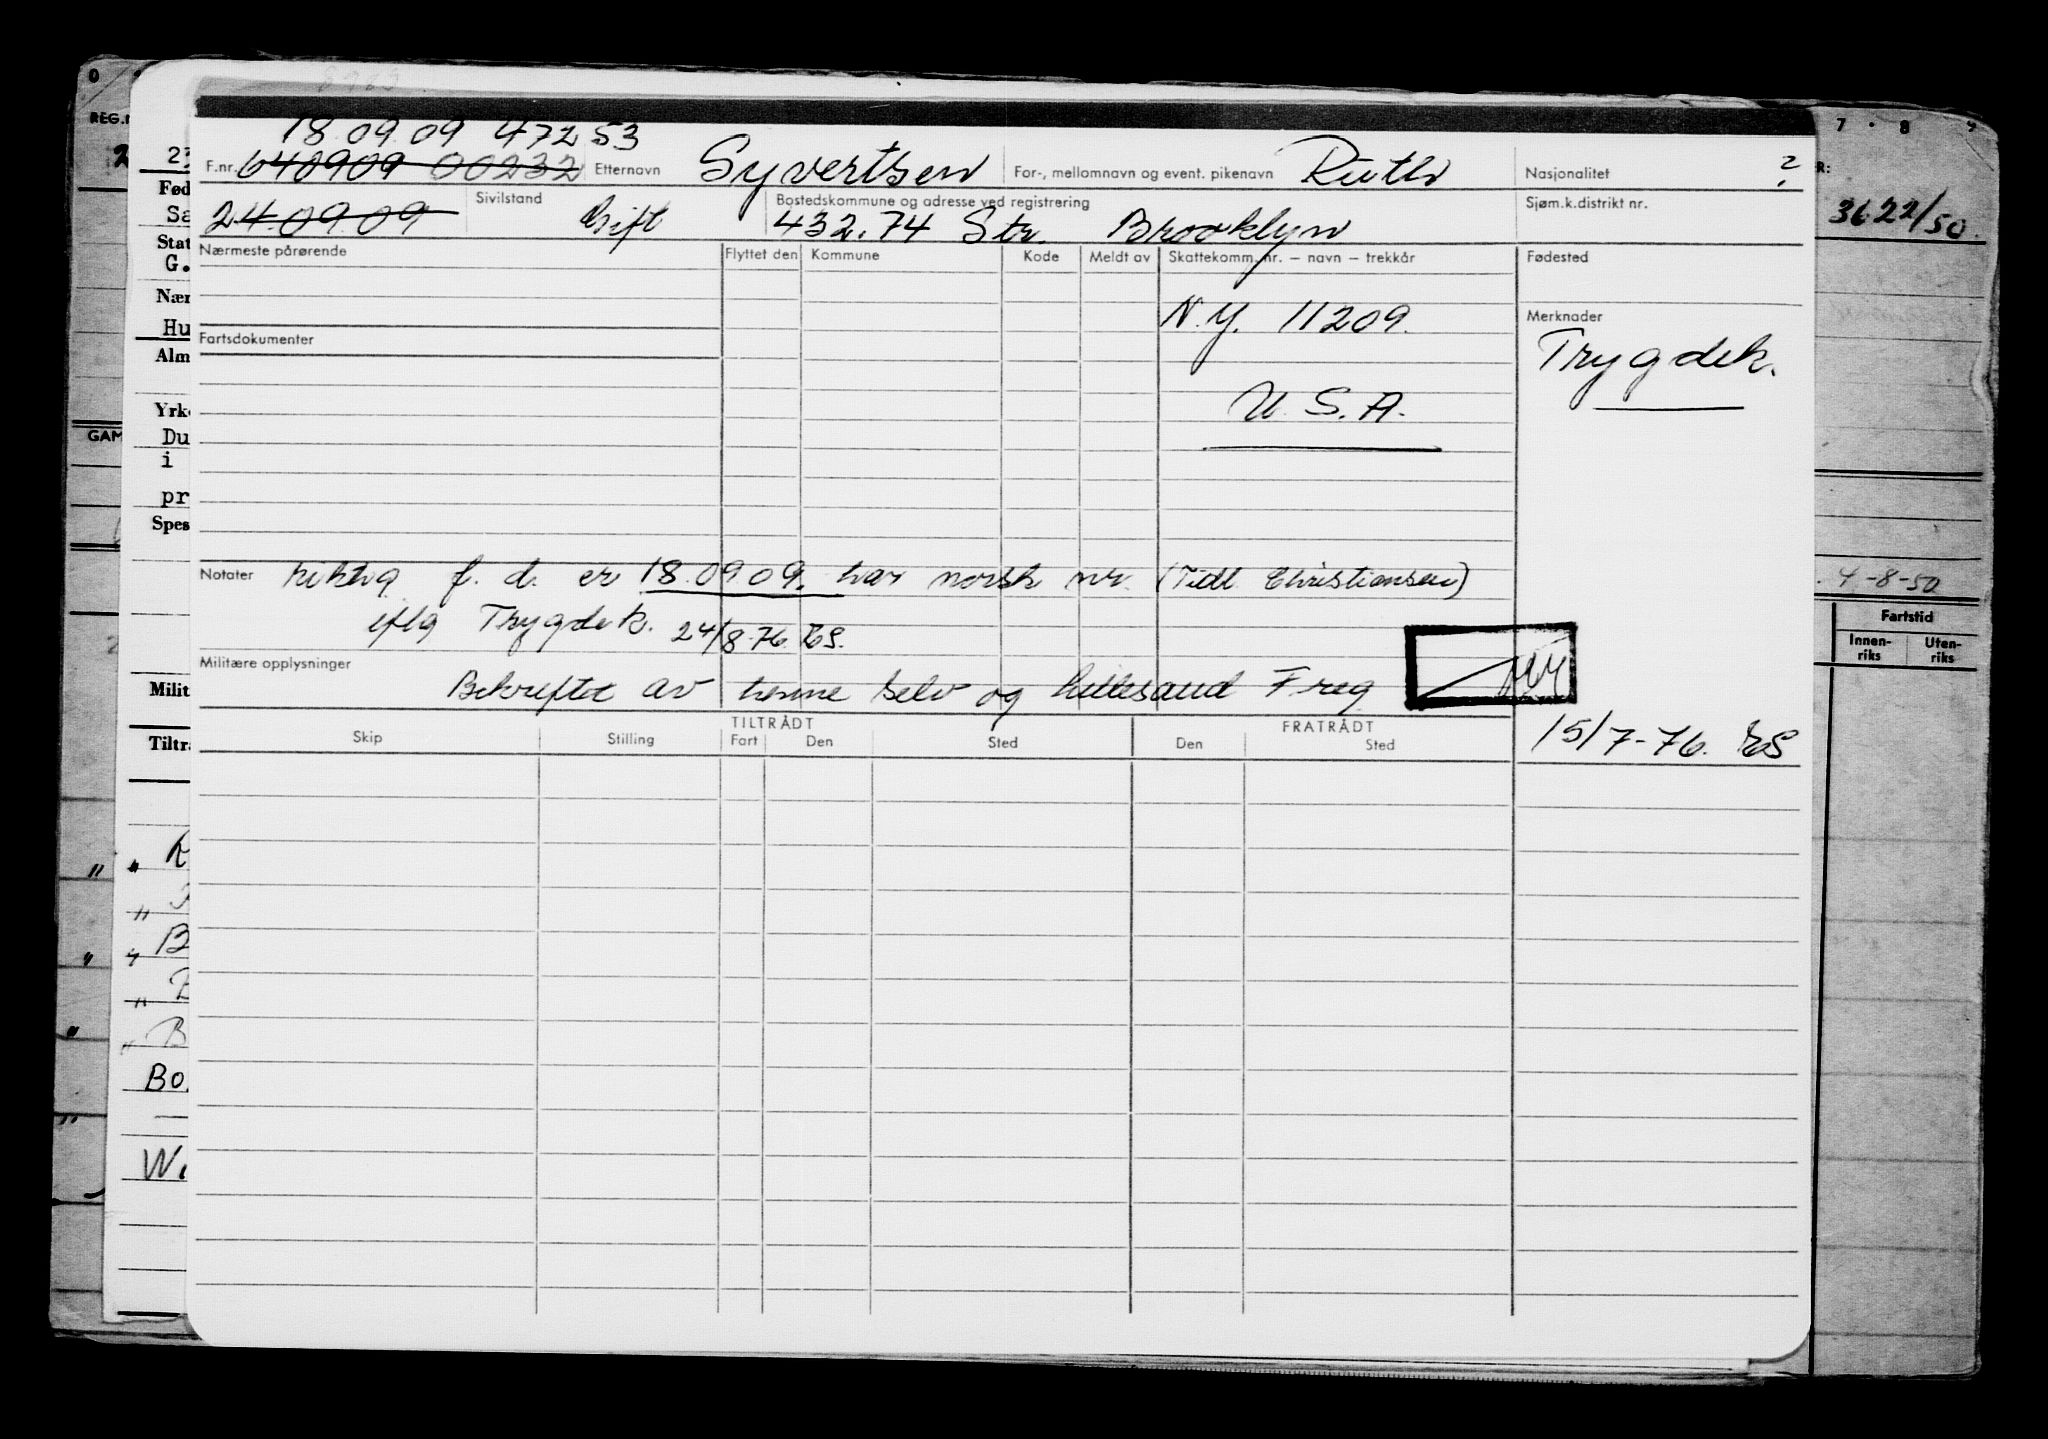 18.09.09 47253
F.nr. 640909 00232 Etternavn Syvertsen For-, mellomnavn og event. pikenavn Ruth Nasjonalitet ?
24.09.09 Sivilstand Gift Bostedskommune og adresse ved registrering 432.74 Str. Brooklyn Sjøm.k.distrikt nr.
Nærmeste pårørende Flyttet den Kommune Kode Meldt av Skattekomm. nr. – navn – trekkår Fødested
N.Y. 11209. Merknader
Fartsdokumenter Trygdek.
U.S.A.
Notater riktig f.d. er 18.09.09. har norsk nr. (Tidl. Christiansen)
iflg Trygdek. 24/8-76 ES.
Militære opplysninger
Bekreftet av henne selv og Lillesand Freg
15/7-76. ES
TILTRÅDT FRATRÅDT
Skip Stilling Fart Den Sted Den Sted
REG.
Fød
Sa
Stat
G.
Nær
Hu
Alm
Yrk
GAM
Du
i
pr
Spes
Milit
Tiltr
K
B
B
Bo
3622/50
4-8-50
Fartstid
Innen-riks Uten-riks